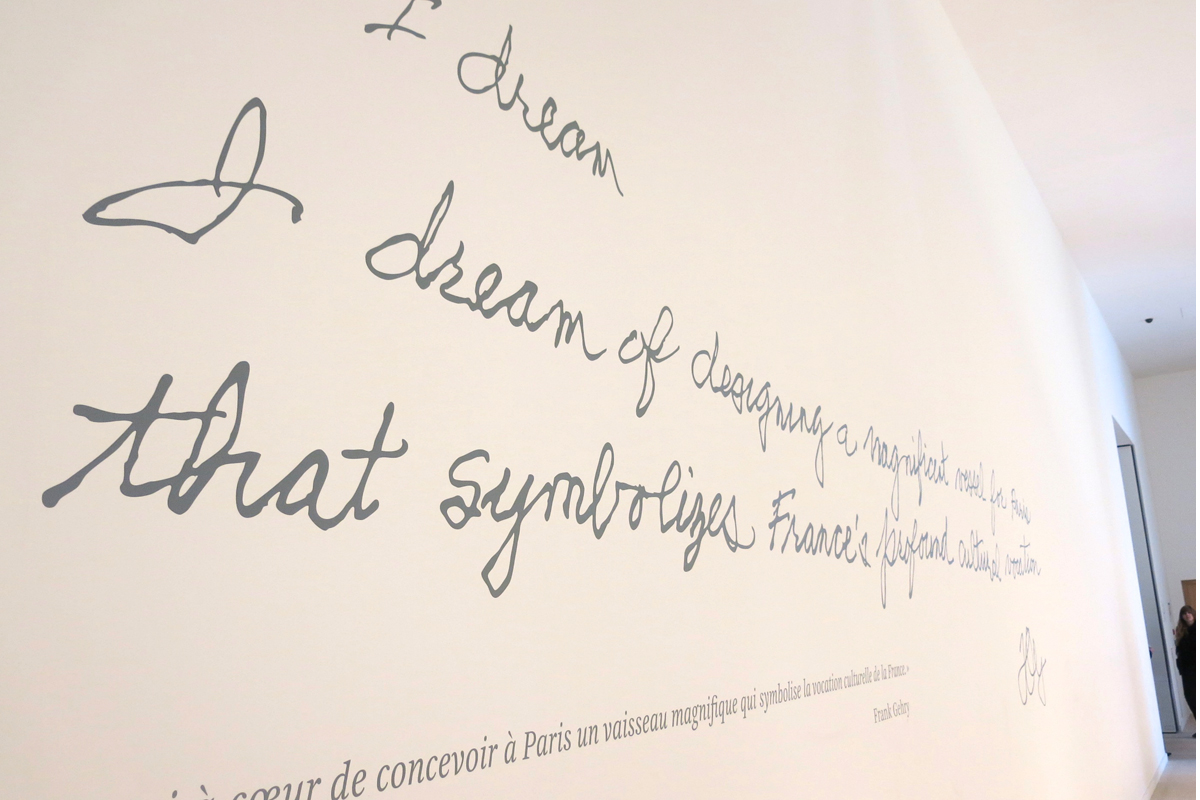 I dream
I dream of designing a magnificent vessel for Paris
that symbolizes France's profound cultural vocation
à cœur de concevoir à Paris un vaisseau magnifique qui symbolise la vocation culturelle de la France.»
Frank Gehry